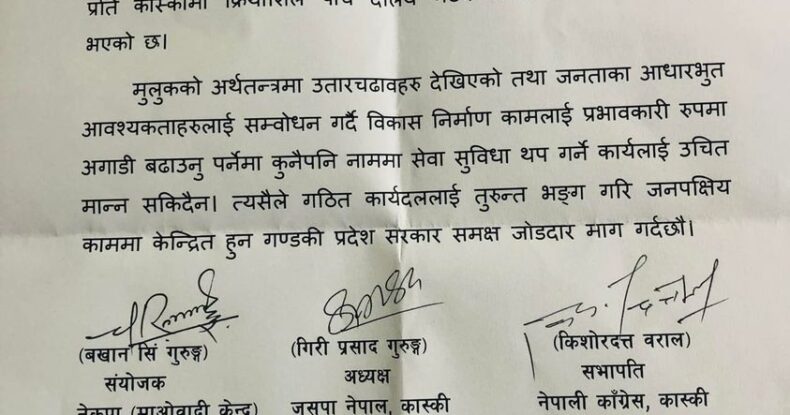 प्रति कास्कीमा क्रियाशिल पाँच दलिय
भएको छ।
मुलुकको अर्थतन्त्रमा उतारचढावहरु देखिएको तथा जनताका आधारभुत
आवश्यकताहरुलाई सम्वोधन गर्दै विकास निर्माण कामलाई प्रभावकारी रुपमा
अगाडी बढाउनु पर्नेमा कुनैपनि नाममा सेवा सुविधा थप गर्ने कार्यलाई उचित
मान्न सकिदैन। त्यसैले गठित कार्यदललाई तुरुन्त भङ्ग गरि जनपक्षिय
काममा केन्द्रित हुन गण्डकी प्रदेश सरकार समक्ष जोडदार माग गर्दछौ।
(बखान सिं गुरुङ्ग) (गिरी प्रसाद गुरुङ्ग) (किशोरदत्त वराल)
संयोजक अध्यक्ष सभापति
नेकपा (माओवादी केन्द्र) जसपा नेपाल, कास्की नेपाली काँग्रेस, कास्की